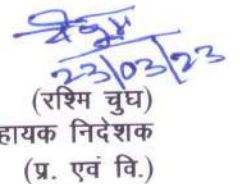 23/03/23
(रश्मि चुघ)
हायक निदेशक
(प्र. एवं वि.)